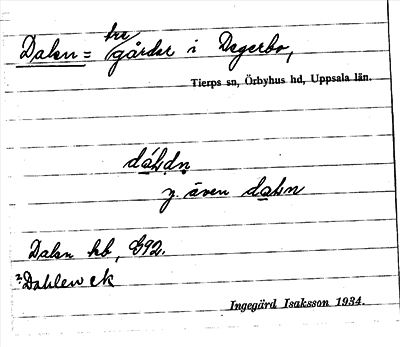 Dalen = tre gårdar i Degerbo,
Tierps sn, Örbyhus hd, Uppsala län.
y. även
Dalen kb, G92.
2 Dahlen ek
Ingegärd Isaksson 1934.